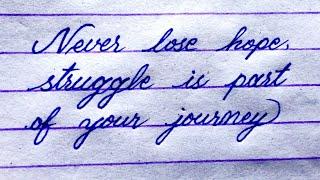 Never lose hope,
struggle is part
of your journey